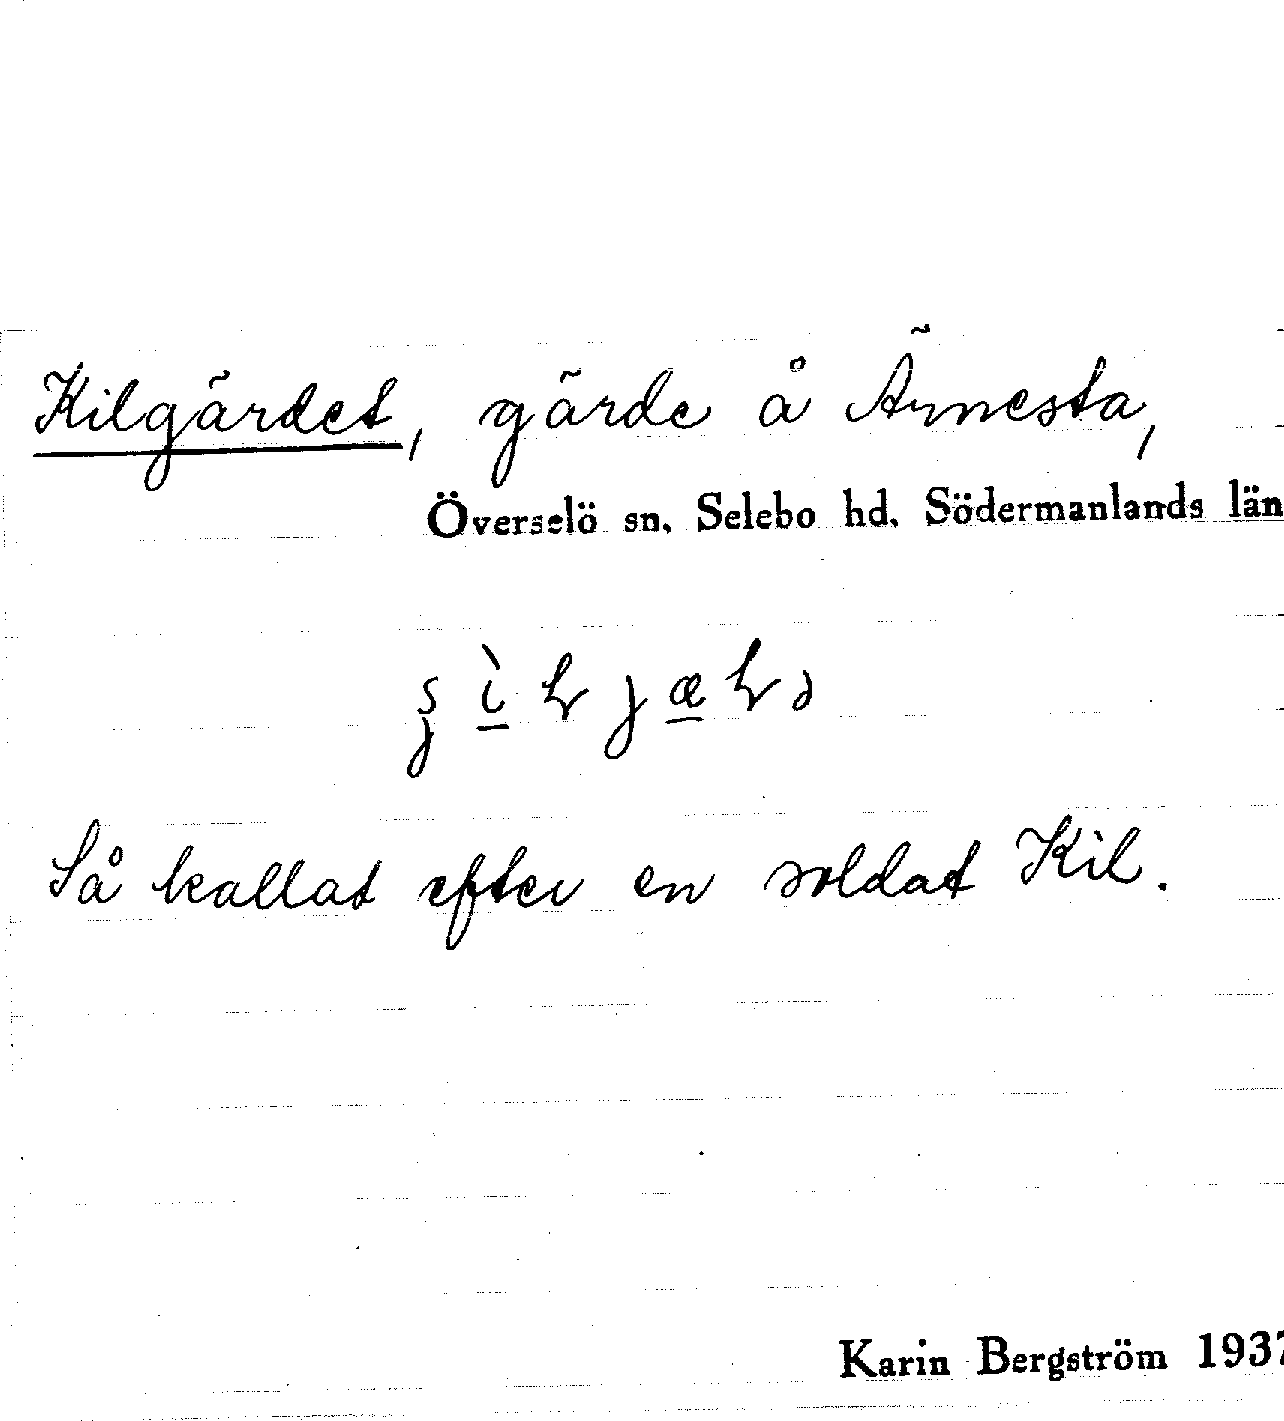 Kilgärdet, gärde å Ärnesta,
Överselö sn. Selebo hd. Södermanlands län
Så kallat efter en soldat Kil.
Karin Bergström 1937